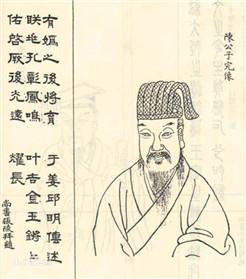 陳公子完像
有媯之後將育于姜邱明傳述
眹兆孔彰鳳鳴叶吉金玉鏘〻
佑啓厥後光遠耀長
尚書張拜題